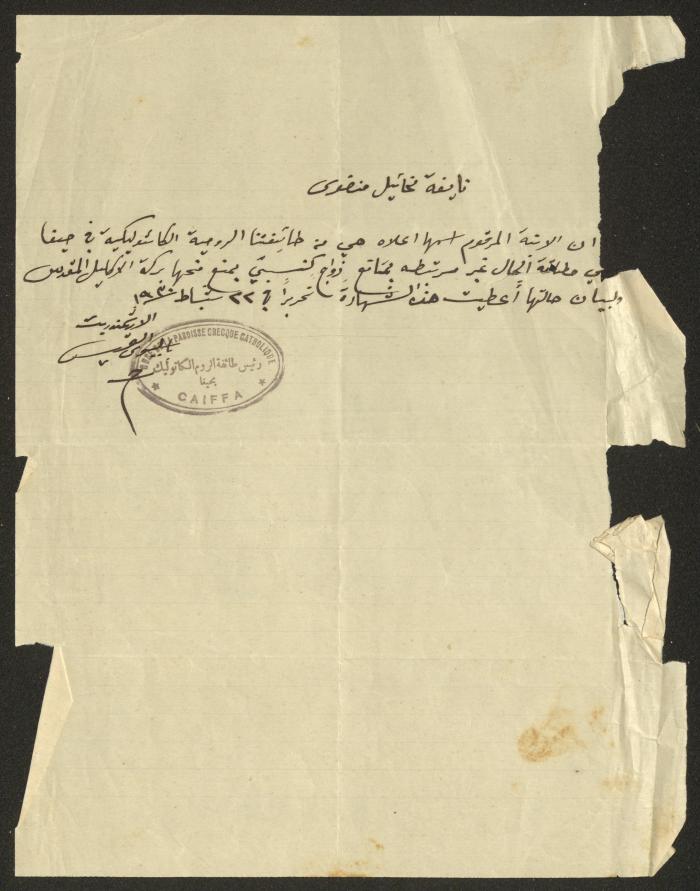 نايفة مخائيل منضوى
ان الابنة المرقوم اسمها اعلاه هي من طائفتنا الرومية الكاثوليكية في حيفا
هي مطلقة الحال غير مرتبطه بمانع زواج كنسيّ يمنع منحها بركة الاكليل المقدس
ولبيان حالتها أُعطيت هذه الشهادة تحريرًا في ٢٢ شباط ١٩٣٠
الارشمندريت
PAROISSE GRECQUE CATHOLIQUE
رئيس طائفة الروم الكاثوليك
بحيفا
CAIFFA